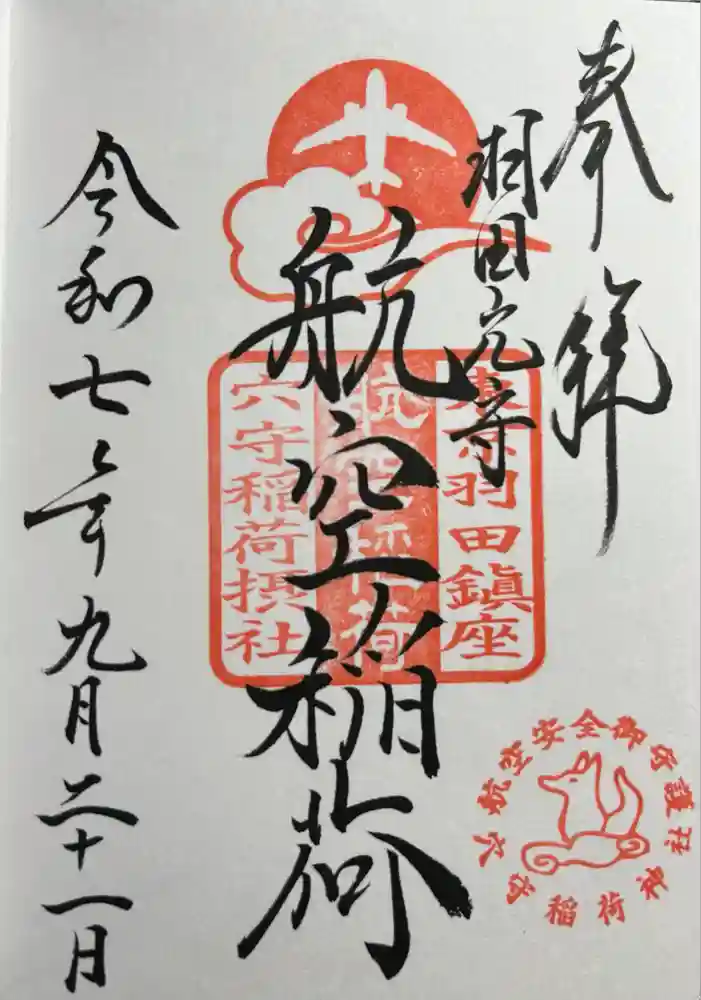 奉拝
羽田穴守
航空稲荷
令和七年九月二十一日
東京羽田鎮座
航空稲荷
穴守稲荷摂社
安全御守護
穴守稲荷